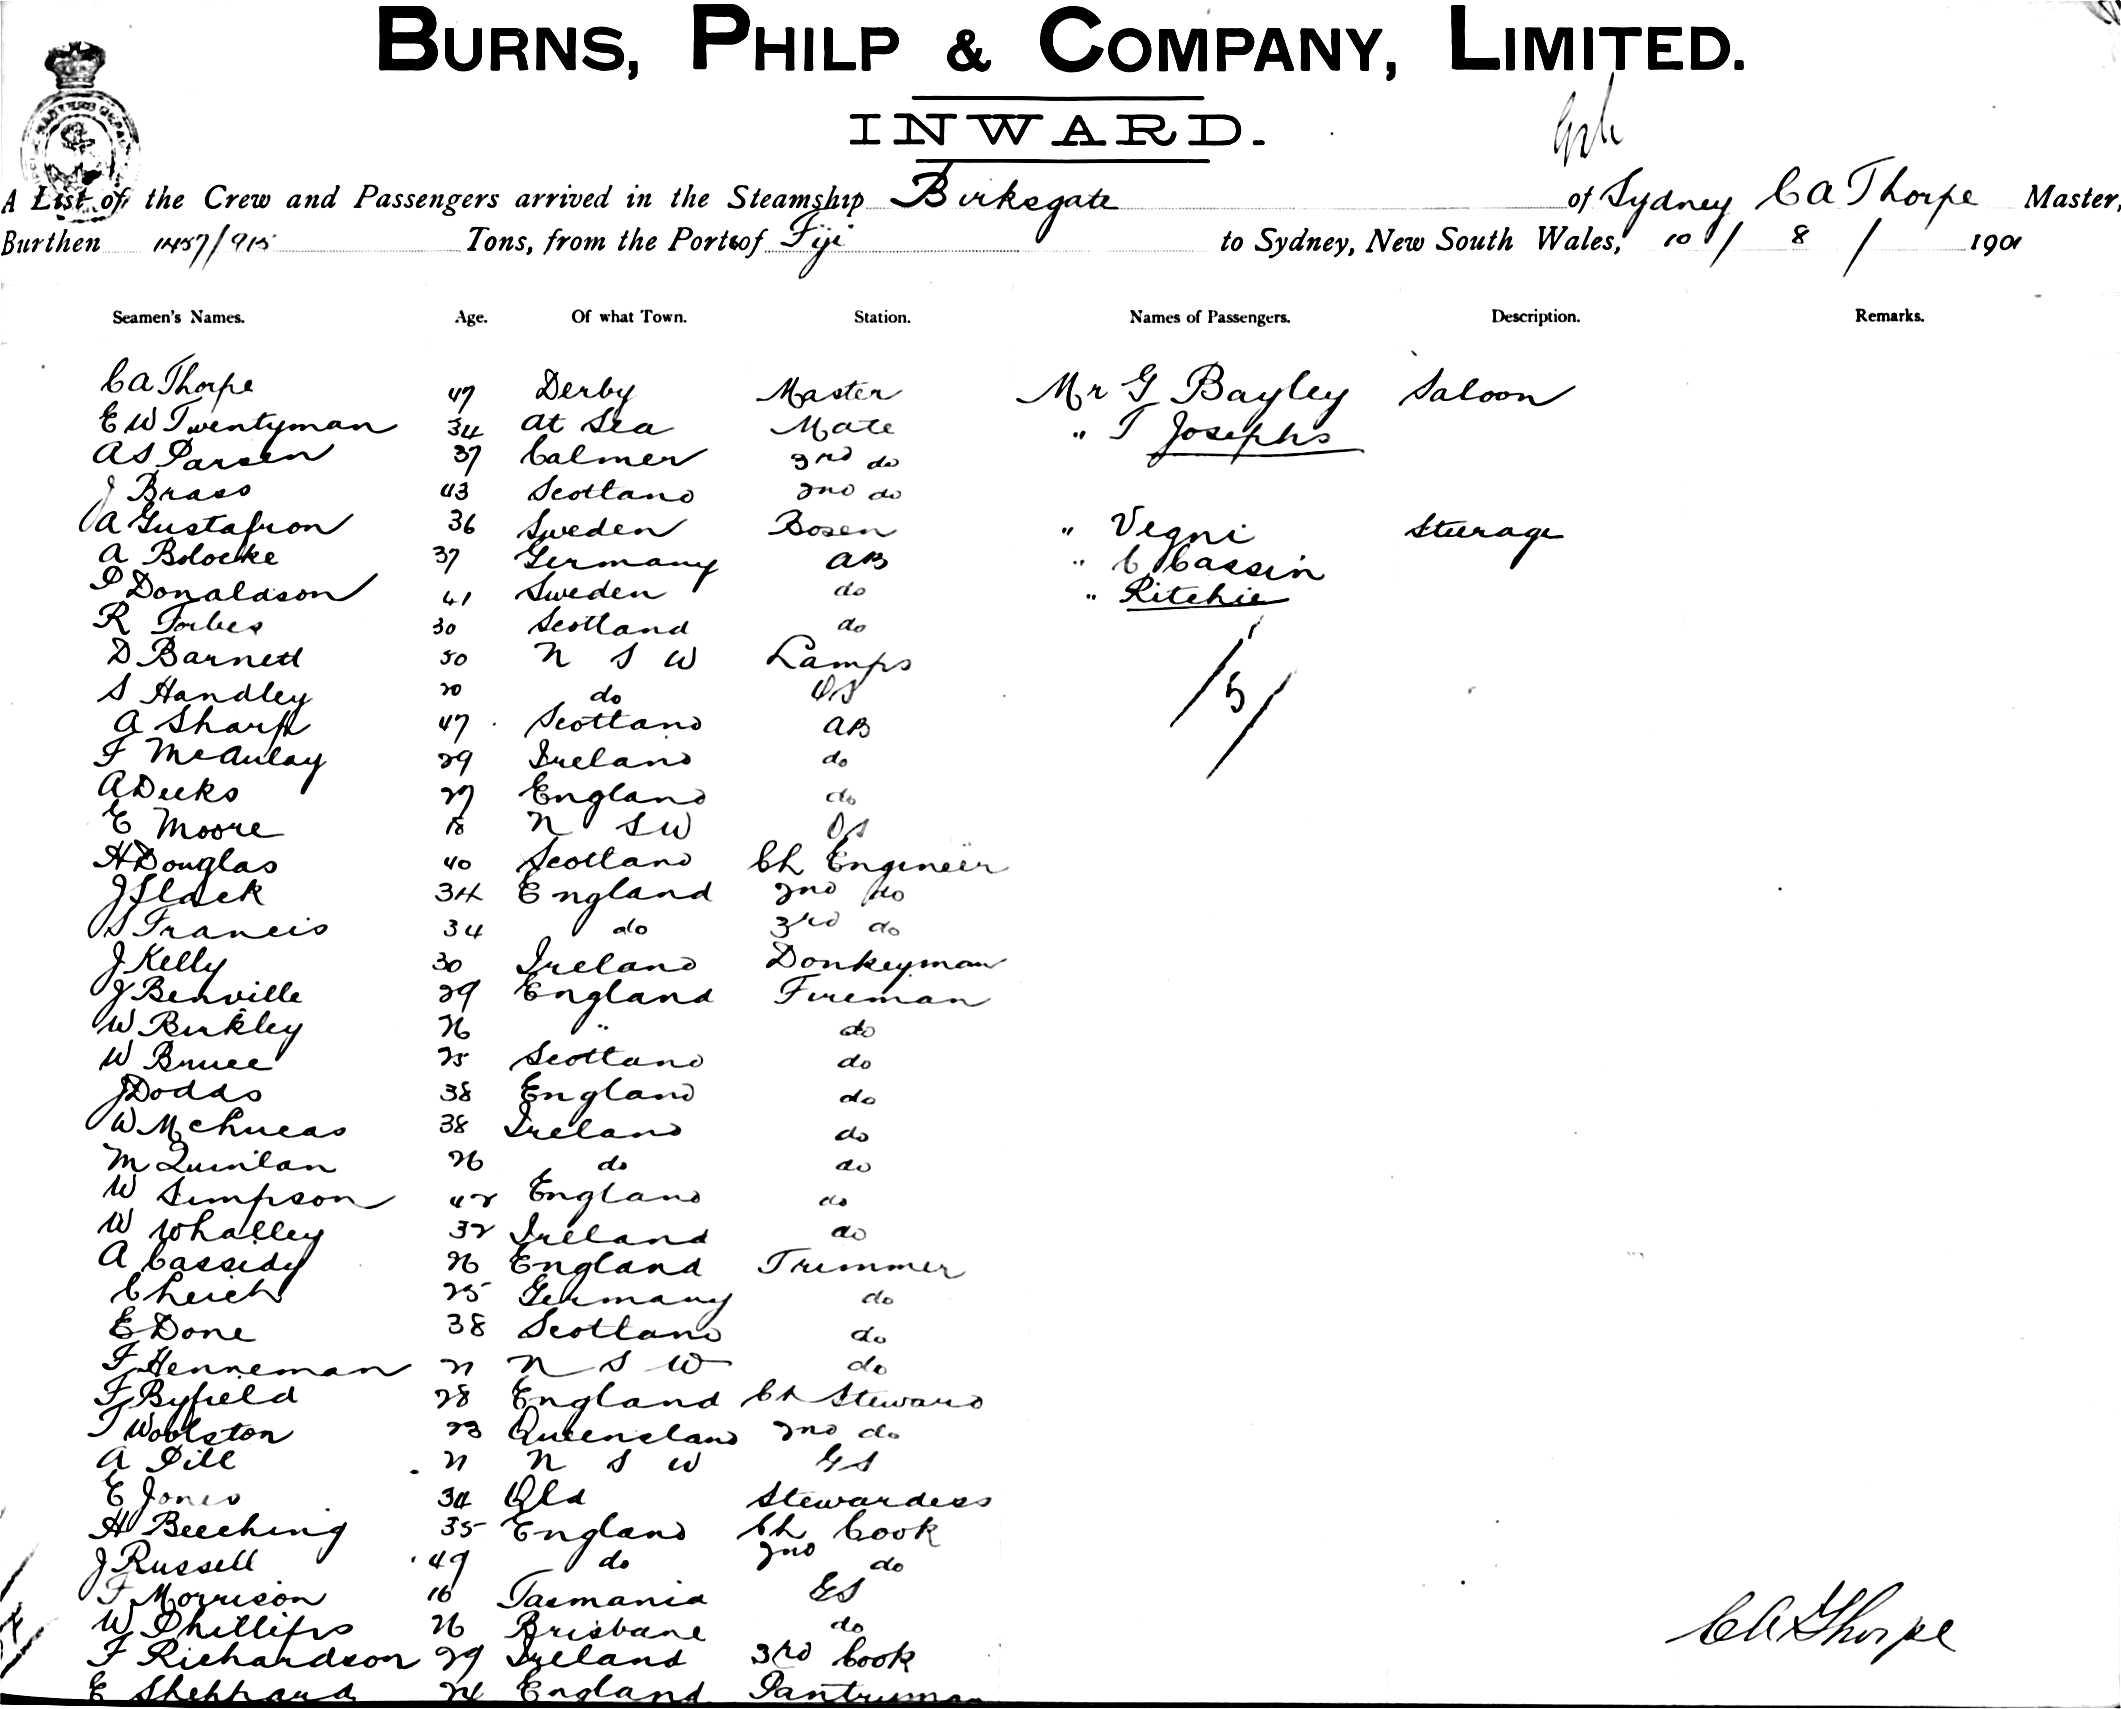 BURNS, PHILP & COMPANY, LIMITED.
INWARD.
A List of the Crew and Passengers arrived in the Steamship Birksgate of Sydney C A Thorpe Master,
Burthen 1457/915 Tons, from the Port of Fiji to Sydney, New South Wales, 10 / 8 / 1901
Seamen's Names. Age. Of what Town. Station. Names of Passengers. Description. Remarks.
C A Thorpe 47 Derby Master Mr G Bayley Saloon
E W Twentyman 34 at Sea Mate " T Josephs
A S Parsen 37 Calmer 3rd do
J Brass 43 Scotland 2nd do
A Gustafson 36 Sweden Bosen " Vegni Steerage
A Bolocke 37 Germany AB " C Cassin
P Donaldson 41 Sweden do " Ritchie
R Forbes 30 Scotland do
D Barnett 50 N S W Lamps
S Handley 20 do OS /5/
A Sharp 47 Scotland AB
F McAulay 29 Ireland do
A Deeks 27 England do
E Moore 18 N S W OS
H Douglas 40 Scotland Ch Engineer
J Slack 34 England 2nd do
S Francis 34 do 3rd do
J Kelly 30 Ireland Donkeyman
J Benville 29 England Fireman
W Birkley 26 " do
W Bruce 25 Scotland do
J Dodds 38 England do
W McLucas 38 Ireland do
M Quinlan 26 do do
W Simpson 42 England do
W Whalley 32 Ireland do
A Cassidy 26 England Trimmer
C Leich 25 Germany do
E Done 38 Scotland do
F Henneman 21 N S W do
F Byfield 28 England Ch Steward
T Woolston 23 Queensland 2nd do
A Pill 21 N S W GS
E Jones 34 Qld Stewardess
H Beeching 35 England Ch Cook
J Russell 49 do 2nd do
F Morrison 16 Tasmania GS
W Phillips 26 Brisbane do
F Richardson 29 Ireland 3rd Cook
E Sheppard 24 England Pantryman
C A Thorpe